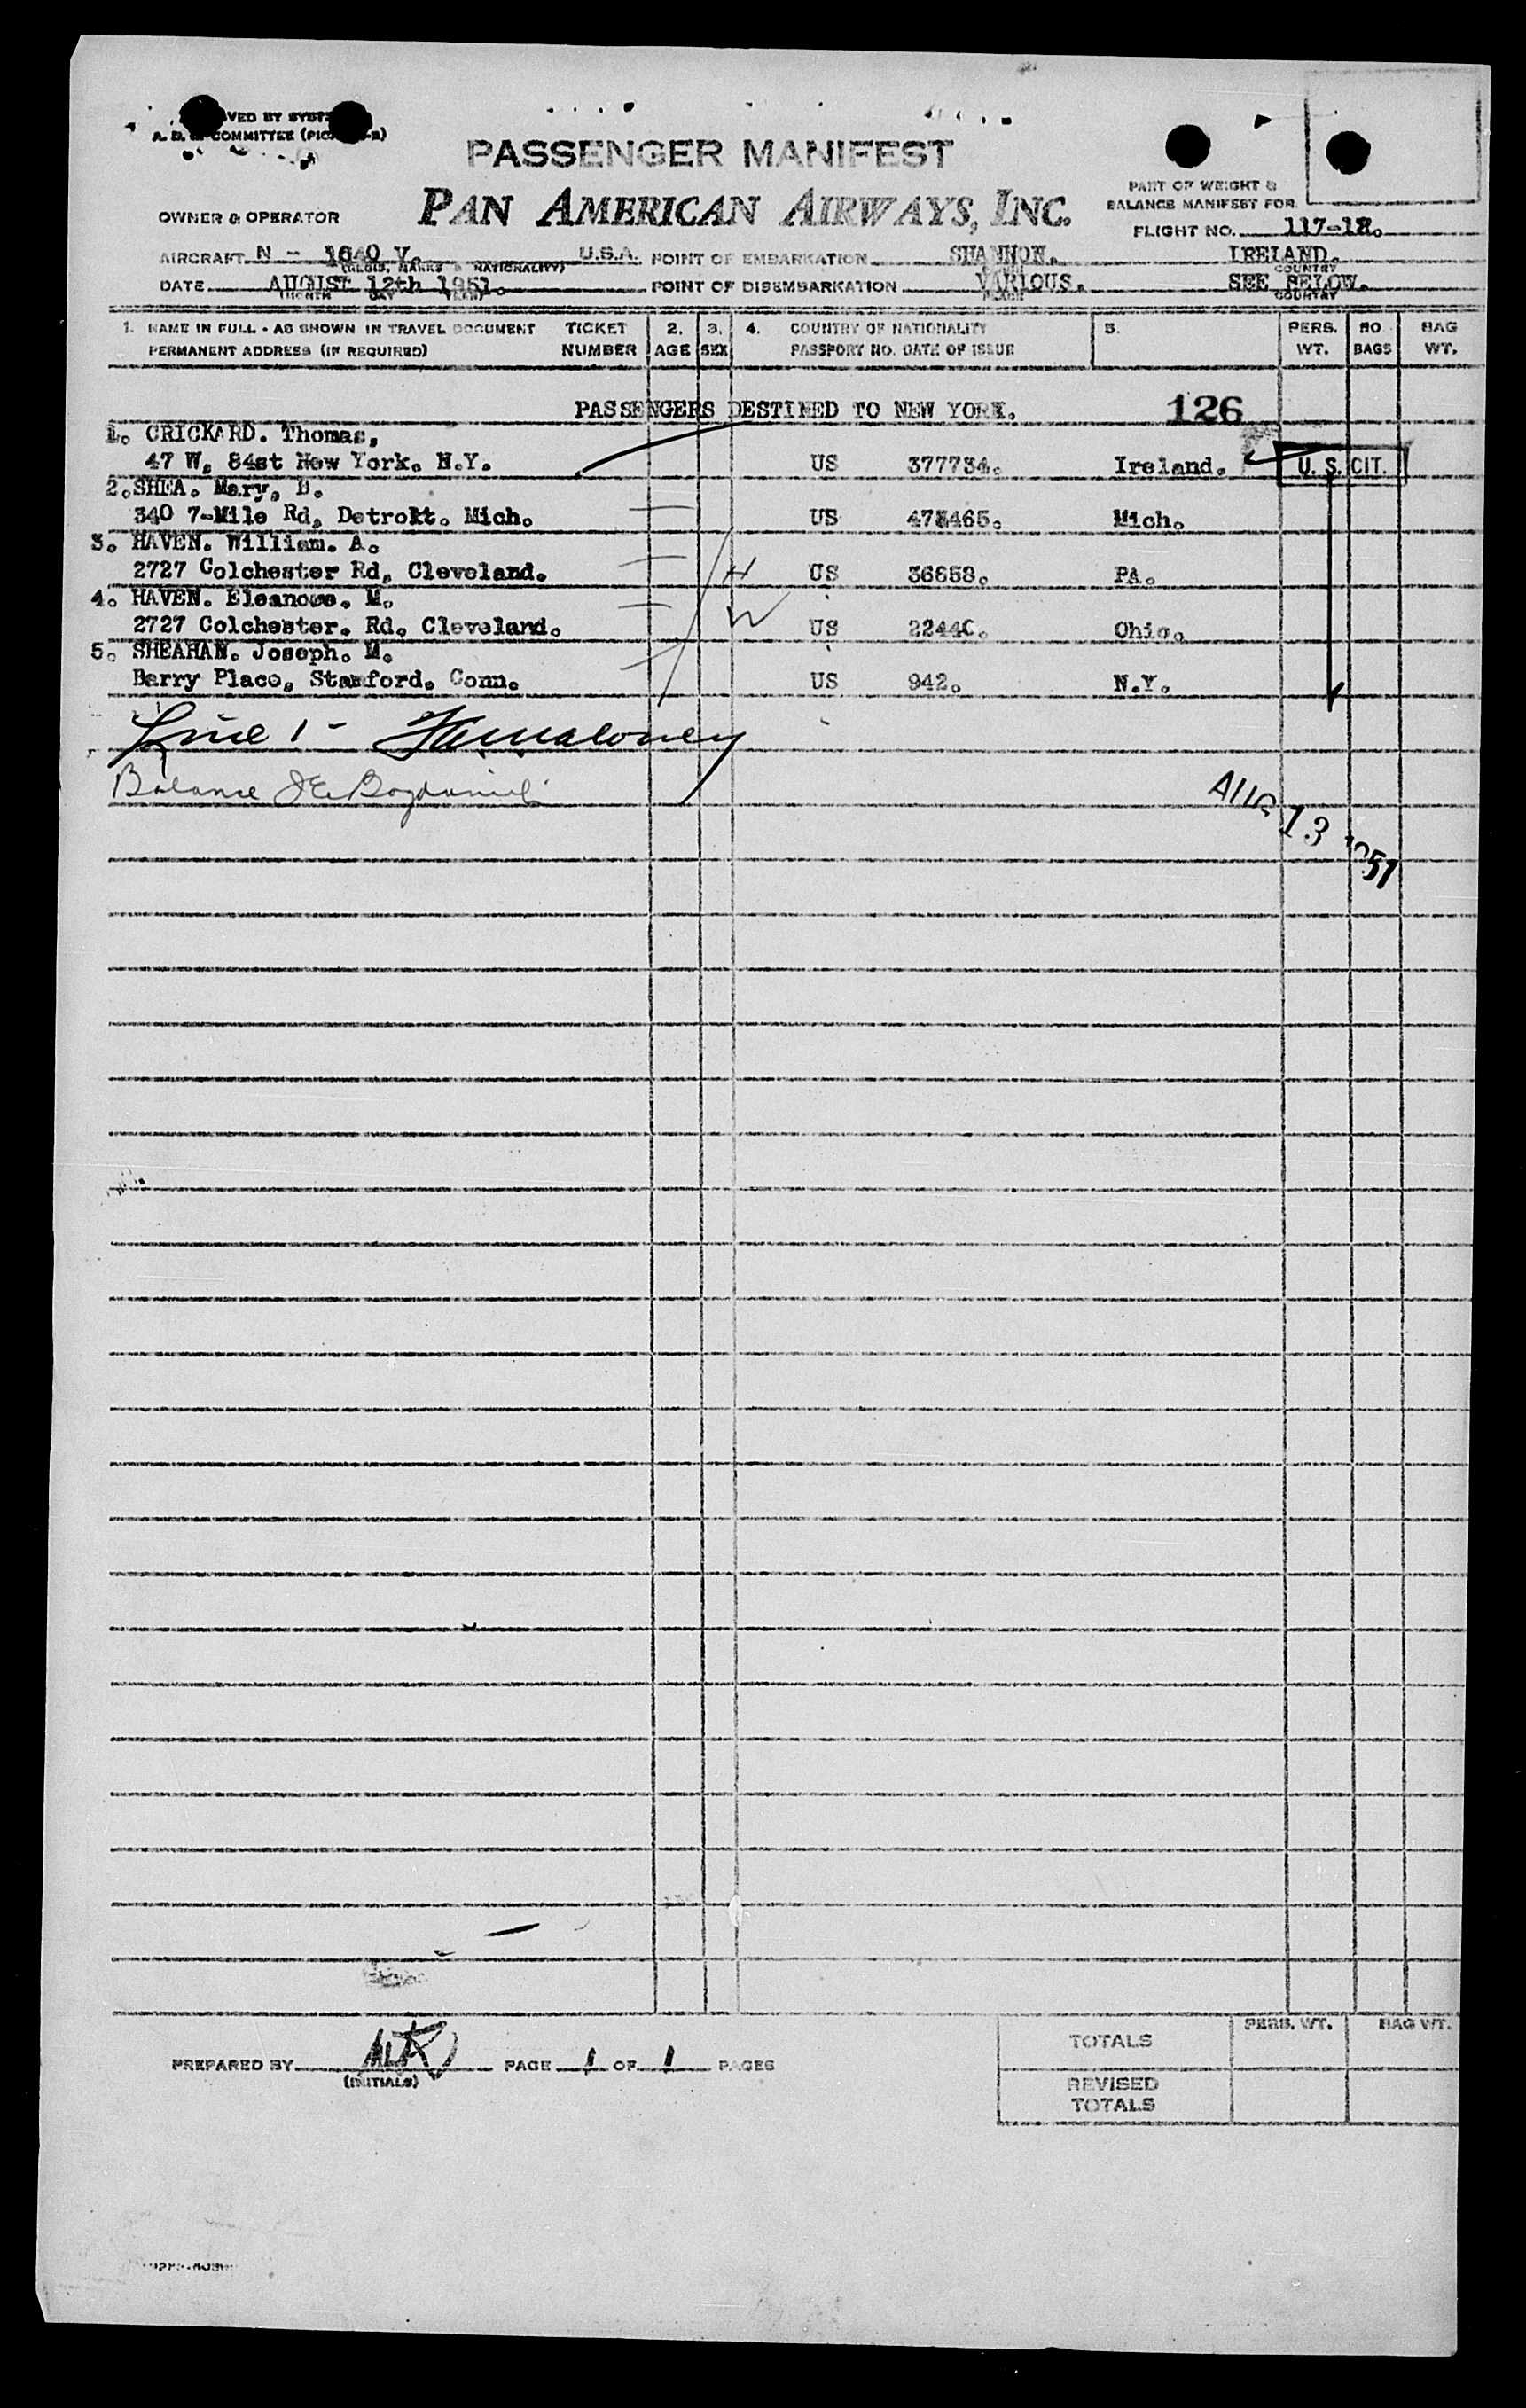 PASSENGER MANIFEST
PAN AMERICAN AIRWAYS, INC.
PART OF WEIGHT &
BALANCE MANIFEST FOR
OWNER & OPERATOR
FLIGHT NO. 117-12.
AIRCRAFT N - 1040 V. U.S.A. POINT OF EMBARKATION SHANNON. IRELAND.
(REGIS. MARKS & NATIONALITY) COUNTRY
DATE AUGUST 12th 1951. POINT OF DISEMBARKATION VARIOUS. SEE BELOW.
MONTH DAY YEAR PLACE COUNTRY
1. NAME IN FULL - AS SHOWN IN TRAVEL DOCUMENT TICKET 2. 3. 4. COUNTRY OF NATIONALITY 5. PERS. NO BAG
PERMANENT ADDRESS (IF REQUIRED) NUMBER AGE SEX PASSPORT NO. DATE OF ISSUE WT. BAGS WT.
PASSENGERS DESTINED TO NEW YORK. 126
1. CRICKARD. Thomas,
47 W, 84st New York. N.Y. US 377734. Ireland. U. S. CIT.
2. SHEA. Mary, B.
340 7-Mile Rd, Detroit. Mich. US Mich.
3. HAVEN. William. A.
2727 Colchester Rd, Cleveland. H US 36658. PA.
4. HAVEN. Eleanore. M.
2727 Colchester. Rd. Cleveland. W US Ohio.
5. SHEAHAN. Joseph. M.
Barry Place, Stamford. Conn. US 942. N.Y.
Line 1 -
Balance
AUG 13 1951
TOTALS PERS. WT. BAG WT.
PREPARED BY PAGE 1 OF 1 PAGES
(INITIALS)
REVISED
TOTALS